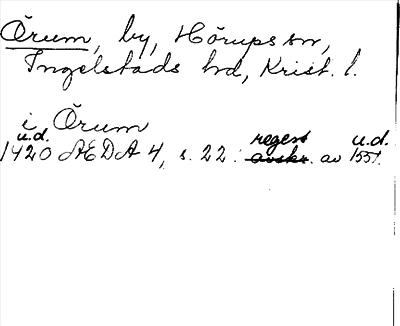 Örum, by, Hörups sn,
Ingelstads hd, Krist. l.
i Örum
u.d. regest u.d.
1420 ÆDA 4, s. 22: avskr. av 1551.